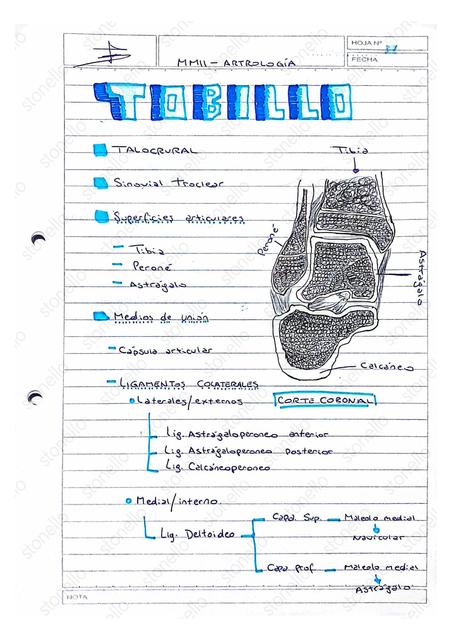 HOJA Nº
FECHA
MMII - ARTROLOGÍA
TOBILLO
TALOCRURAL
Sinovial troclear
Superficies articulares
- Tibia
- Peroné
- Astrágalo
Medios de unión
- Cápsula articular
- LIGAMENTOS COLATERALES
Laterales/externos
Lig. Astrágaloperoneo anterior
Lig. Astrágaloperoneo posterior
Lig. Calcáneoperoneo
Medial/interno.
Lig. Deltoideo
Capa Sup. - Maleolo medial
Navicular
Capa Prof. - Maleolo medial
Astrágalo
Tibia
Peroné
Astrágalo
Calcáneo
CORTE CORONAL
NOTA
stonello